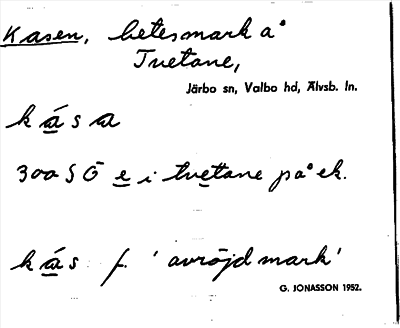 Kasen, betesmark å
Tvetane,
Järbo sn, Valbo hd, Älvsb. ln.
kása
300 S Ö e i tvetane på ek.
kás f. 'avröjd mark'
G. JONASSON 1952.